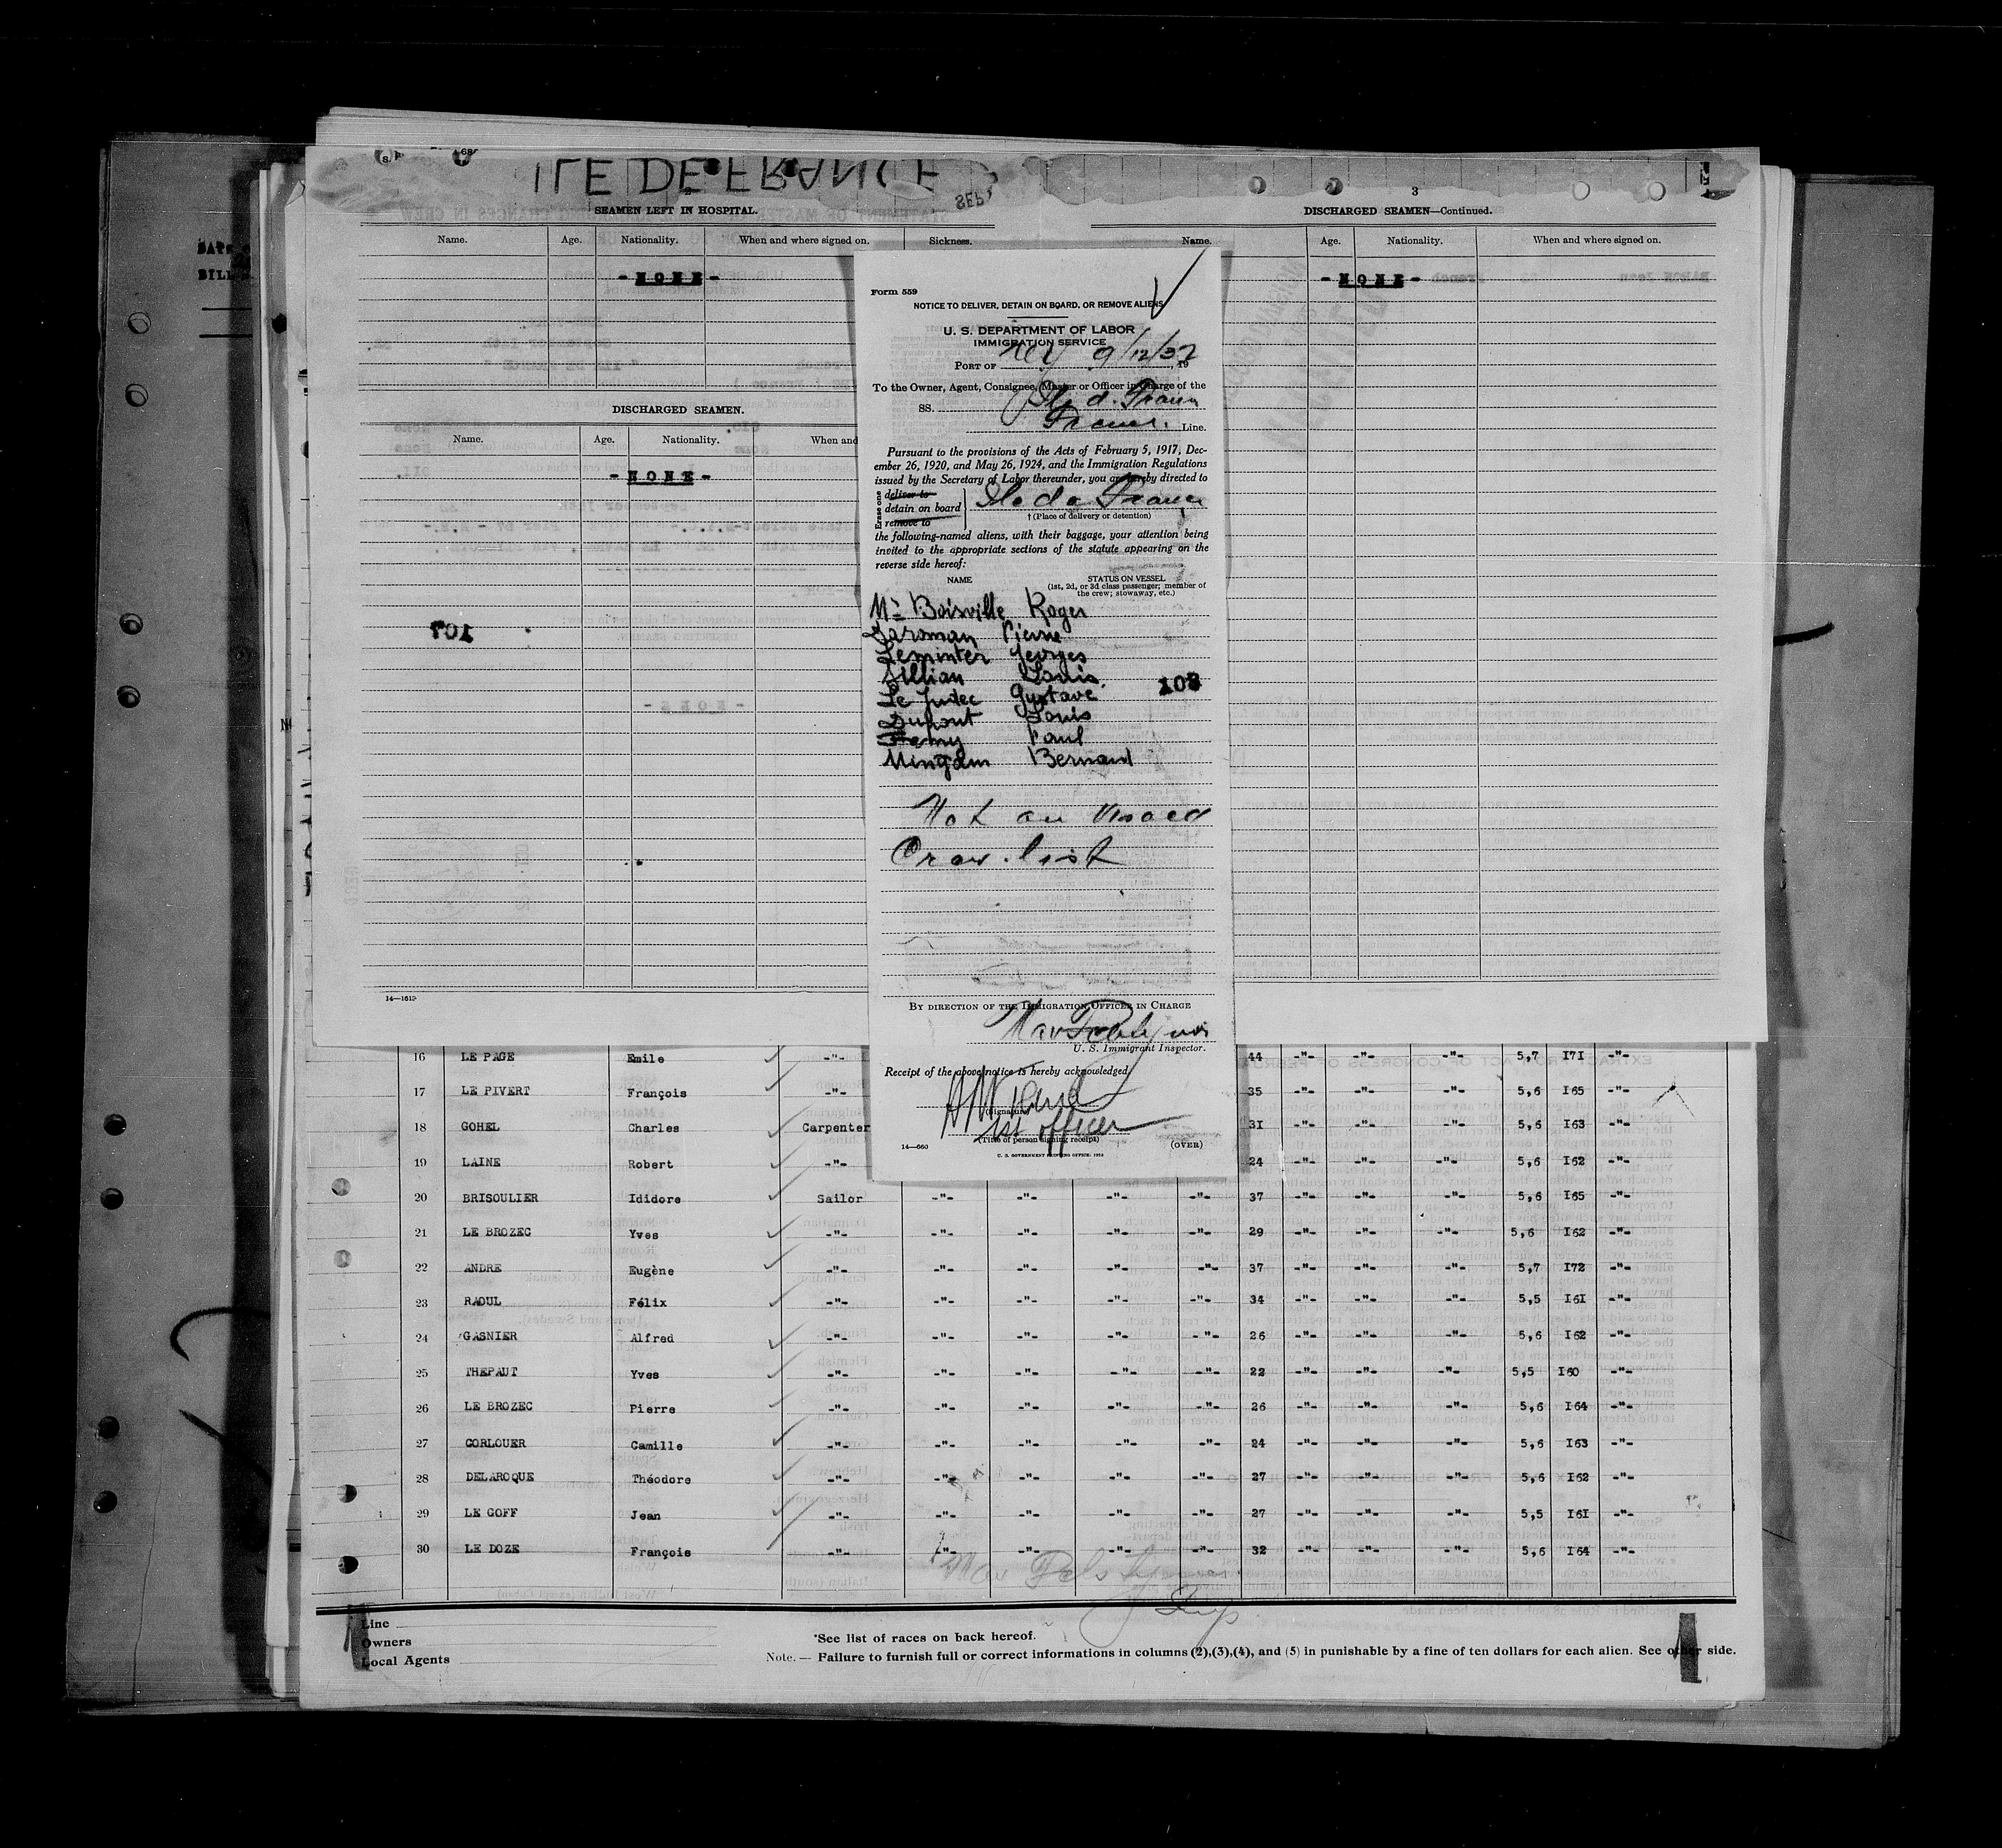 ILE DE FRANCE
SEP
3
SEAMEN LEFT IN HOSPITAL.
Name. Age. Nationality. When and where signed on. Sickness.
- N O N E -
DISCHARGED SEAMEN.
Name. Age. Nationality. When and
- N O N E -
107
14—1613
DISCHARGED SEAMEN—Continued.
Name. Age. Nationality. When and where signed on.
- N O N E -
Form 559
NOTICE TO DELIVER, DETAIN ON BOARD, OR REMOVE ALIENS
U. S. DEPARTMENT OF LABOR
IMMIGRATION SERVICE
PORT OF N Y 9/12/32, 19
To the Owner, Agent, Consignee, Master or Officer in Charge of the
SS. Ile d. France
France. Line.
Pursuant to the provisions of the Acts of February 5, 1917, Dec-
ember 26, 1920, and May 26, 1924, and the Immigration Regulations
issued by the Secretary of Labor thereunder, you are hereby directed to
Erase one
deliver to
detain on board
remove to
Ile de France
† (Place of delivery or detention)
the following-named aliens, with their baggage, your attention being
invited to the appropriate sections of the statute appearing on the
reverse side hereof:
NAME STATUS ON VESSEL
(1st, 2d, or 3d class passenger; member of
the crew; stowaway, etc.)
Mr Boisville Roger
Pierre
Leminter Georges
Louis
Le Judec Gustave 108
Dupont Louis
Paul
Mingam Bernard
Not on visaed
Crew list
BY DIRECTION OF THE IMMIGRATION OFFICER IN CHARGE
U. S. Immigrant Inspector.
Receipt of the above notice is hereby acknowledged
(Signature)
1st officer
(Title of person signing receipt)
14—660 (OVER)
U. S. GOVERNMENT PRINTING OFFICE
16 LE PAGE Emile -"- 44 -"- -"- -"- 5,7 I7I -"-
17 LE PIVERT François -"- 35 -"- -"- -"- 5,6 I65 -"-
18 GOHEL Charles Carpenter 3I -"- -"- -"- 5,6 I63 -"-
19 LAINE Robert -"- 24 -"- -"- -"- 5,6 I62 -"-
20 BRISOULIER Ididore Sailor -"- -"- -"- -"- 37 -"- -"- -"- 5,6 I65 -"-
21 LE BROZEC Yves -"- -"- -"- -"- -"- 29 -"- -"- -"- 5,6 I62 -"-
22 ANDRE Eugène -"- -"- -"- -"- -"- 37 -"- -"- -"- 5,7 I72 -"-
23 RAOUL Félix -"- -"- -"- -"- -"- 34 -"- -"- -"- 5,5 I6I -"-
24 GASNIER Alfred -"- -"- -"- -"- -"- 26 -"- -"- -"- 5,6 I62 -"-
25 THEPAUT Yves -"- -"- -"- -"- -"- 22 -"- -"- -"- 5,5 I60 -"-
26 LE BROZEC Pierre -"- -"- -"- -"- -"- 26 -"- -"- -"- 5,6 I64 -"-
27 CORLOUER Camille -"- -"- -"- -"- -"- 24 -"- -"- -"- 5,6 I63 -"-
28 DELAROQUE Théodore -"- -"- -"- -"- -"- 27 -"- -"- -"- 5,6 I62 -"-
29 LE GOFF Jean -"- -"- -"- -"- -"- 27 -"- -"- -"- 5,5 I6I -"-
30 LE DOZE François -"- -"- -"- -"- -"- 32 -"- -"- -"- 5,6 I64 -"-
Line
Owners
Local Agents
*See list of races on back hereof.
Note.— Failure to furnish full or correct informations in columns (2),(3),(4), and (5) in punishable by a fine of ten dollars for each alien. See other side.